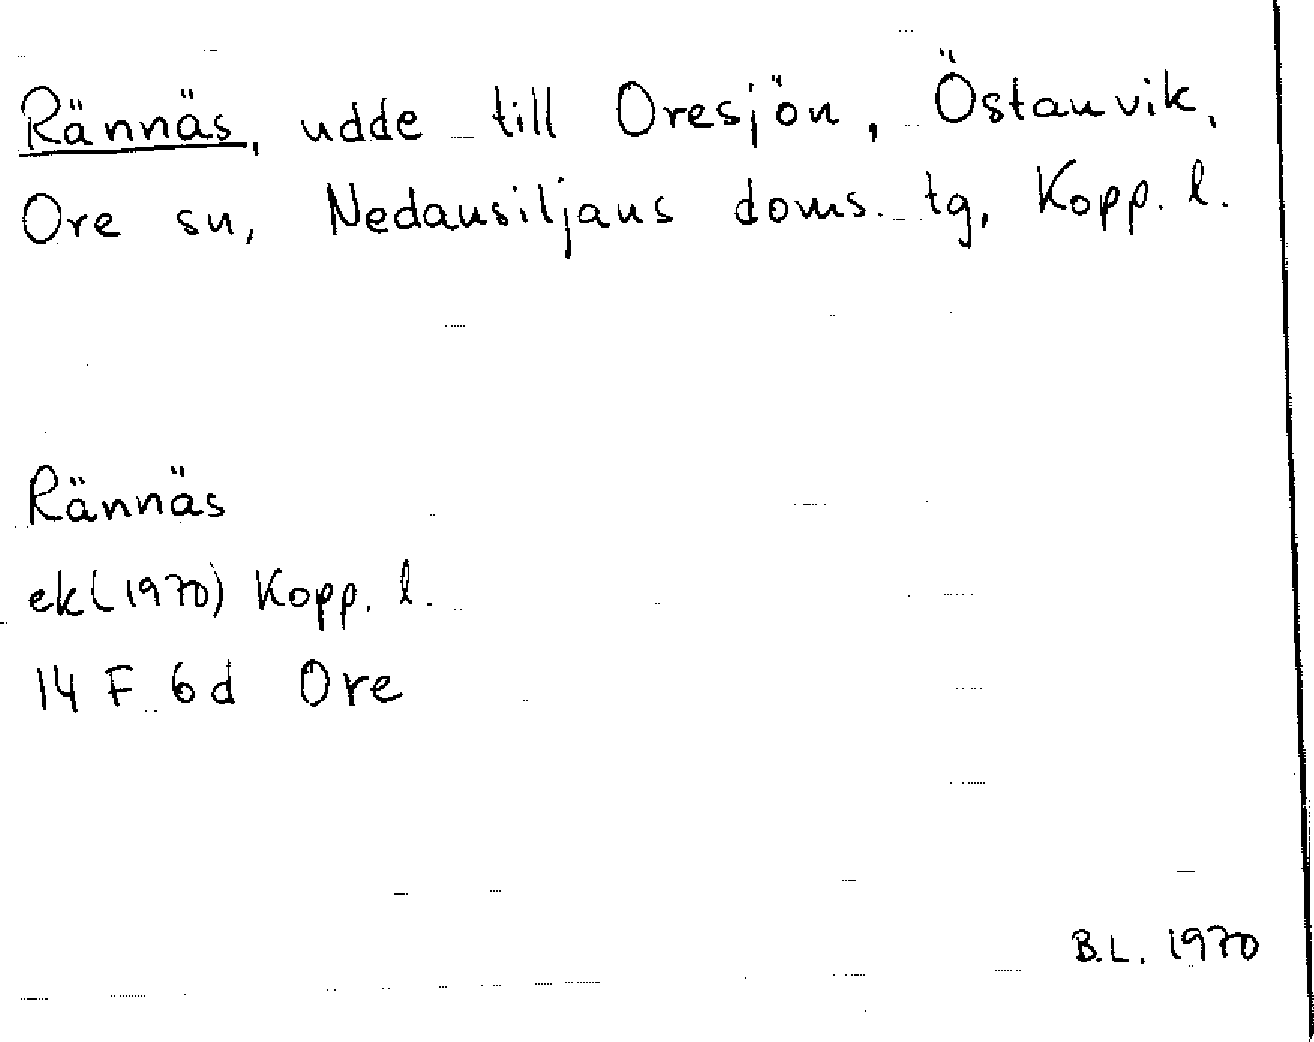 Rännäs, udde till Oresjön, Östanvik,
Ore sn, Nedansiljans doms. tg, Kopp. l.
Rännäs
ek (1970) Kopp. l.
14 F 6d Ore
B.L. 1970